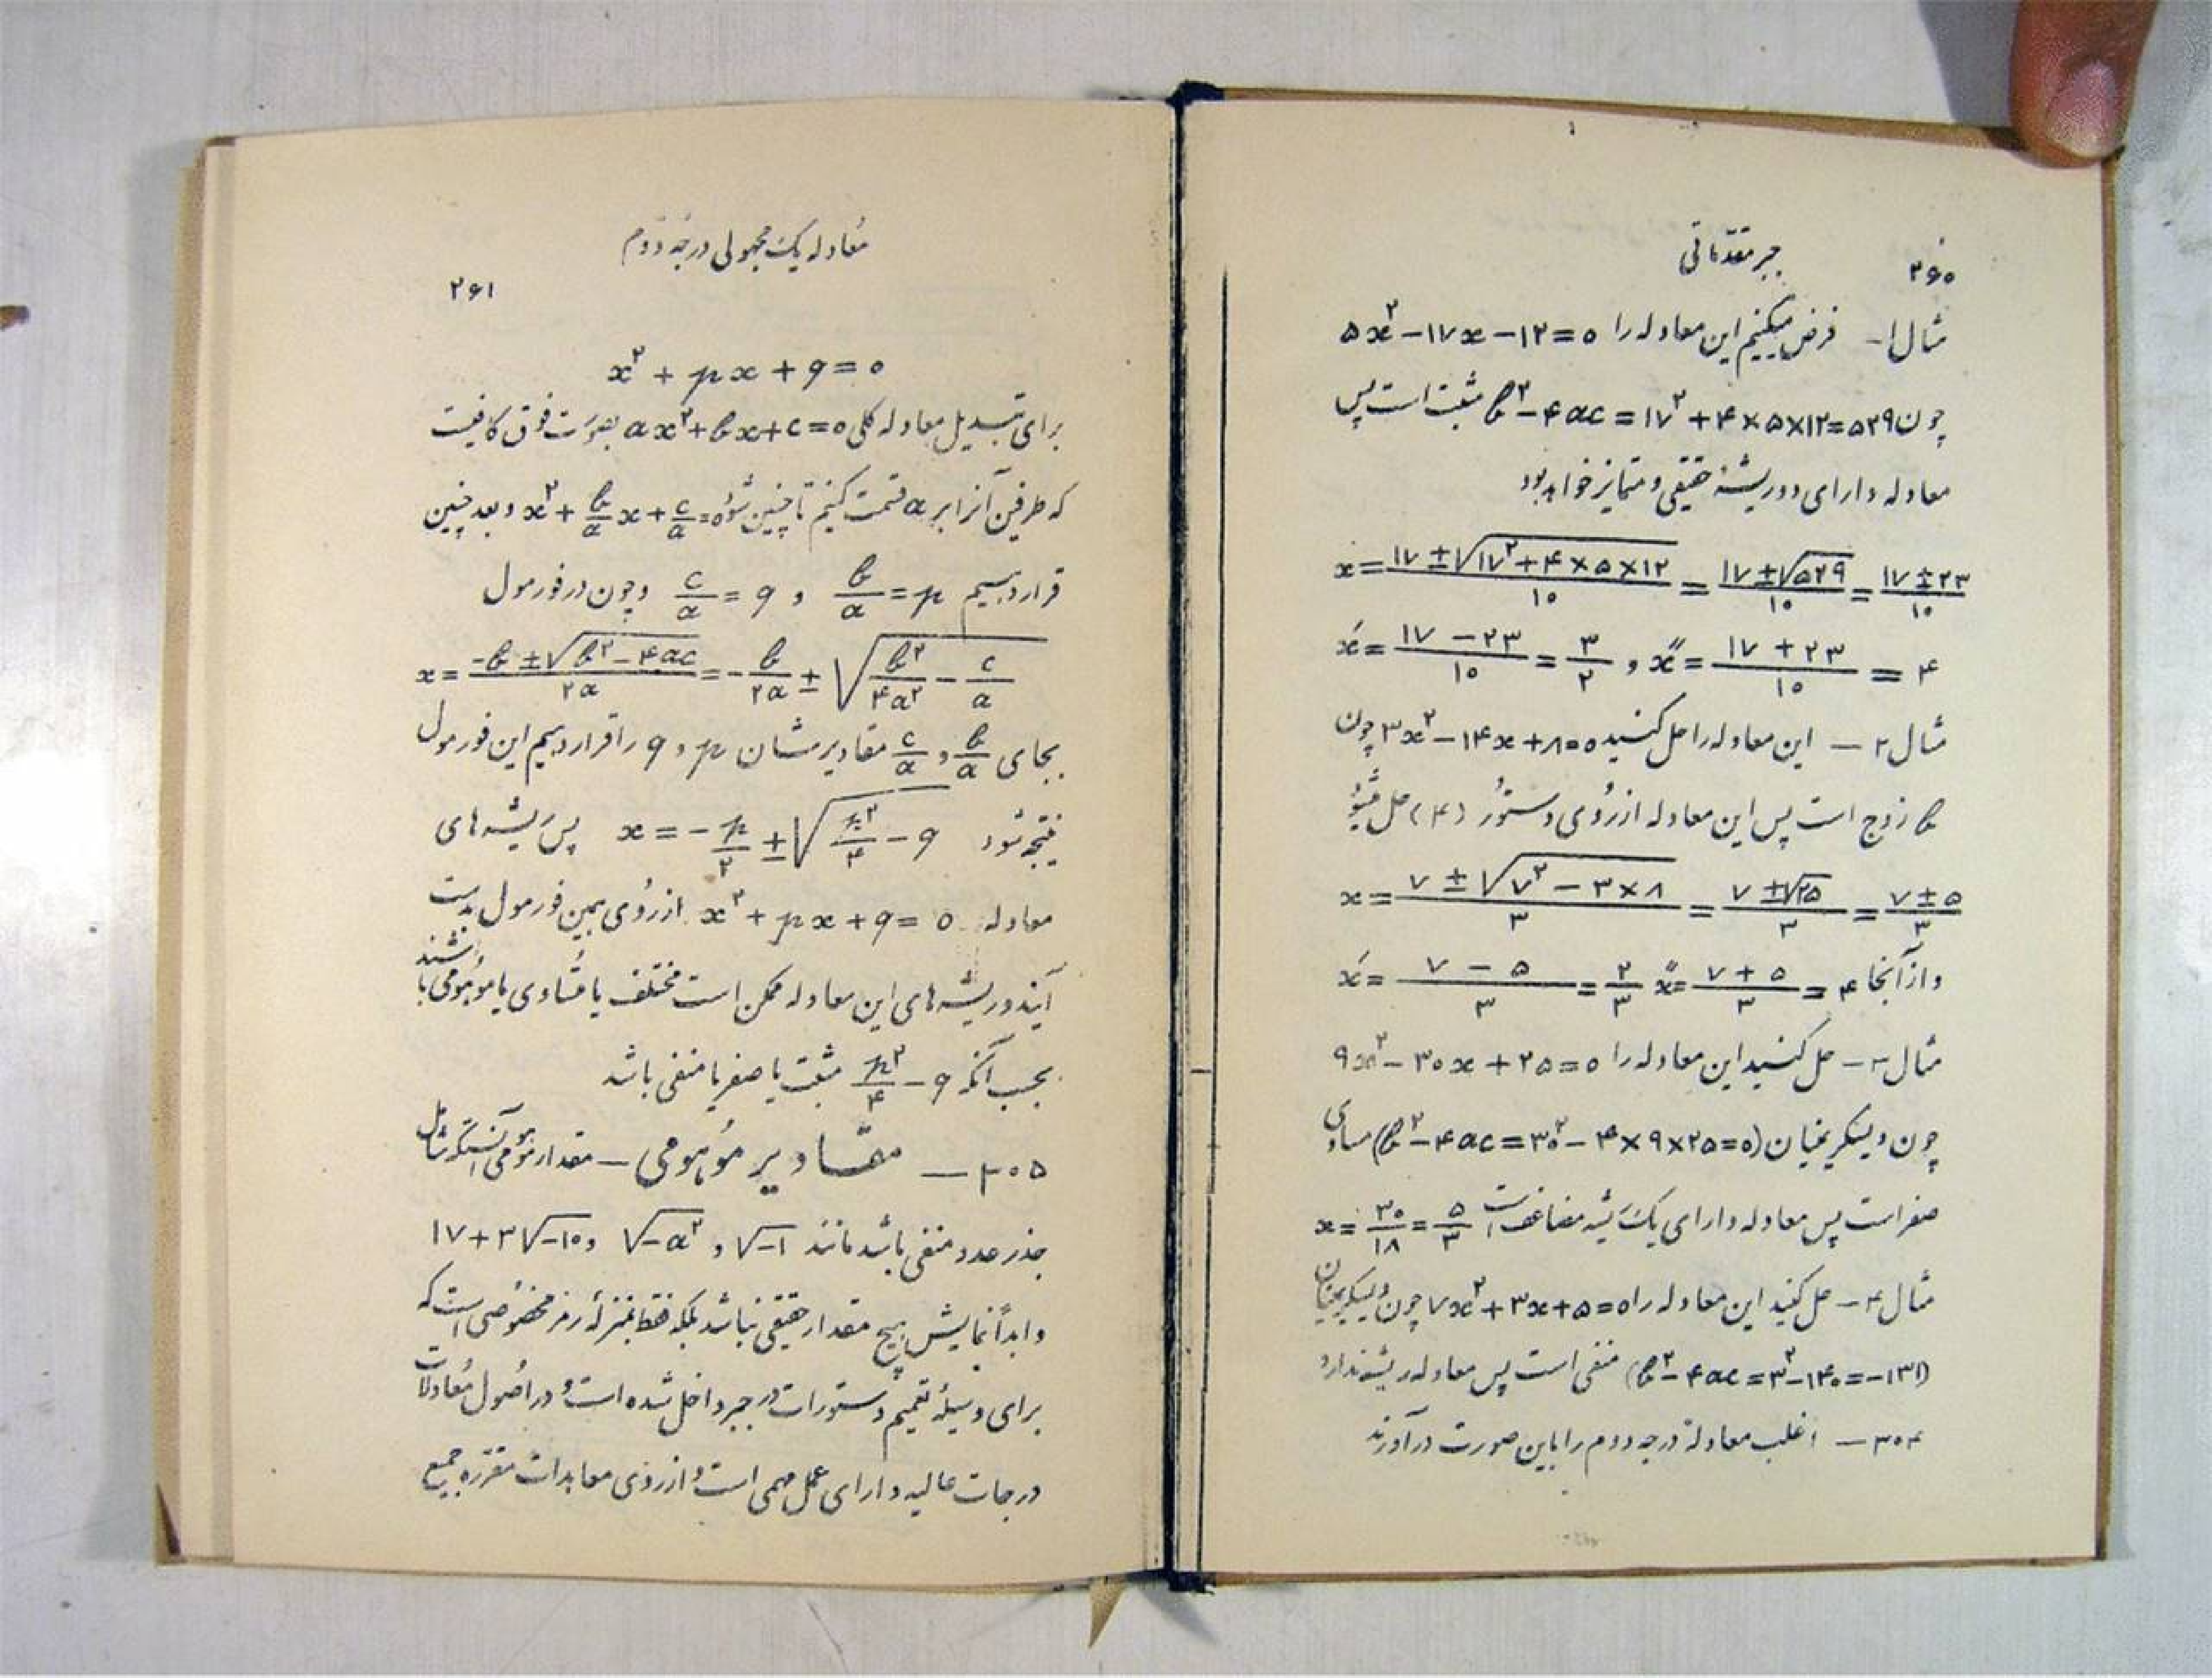 ۲۶۰
جبر مقدّماتی
مثال ۱- فرض میکنیم این معادله را ۵x²-۱۷x-۱۲=۰
چون b²-۴ac=۱۷²+۴×۵×۱۲=۵۲۹ مثبت است پس
معادله دارای دو ریشهٔ حقیقی و متمایز خواهد بود
x=(۱۷±√(۱۷²+۴×۵×۱۲))/۱۰=(۱۷±√۵۲۹)/۱۰=(۱۷±۲۳)/۱۰
x́=(۱۷-۲۳)/۱۰=۳/۲ , x̋=(۱۷+۲۳)/۱۰=۴
مثال ۲- این معادله را حل کنید ۳x²-۱۴x+۸=۰ چون
b زوج است پس این معادله از روی دستور (۴) حل میشود
x=(۷±√(۷²-۳×۸))/۳=(۷±√۲۵)/۳=(۷±۵)/۳
و از آنجا x́=(۷-۵)/۳=۲/۳ x̋=(۷+۵)/۳=۴
مثال ۳- حل کنید این معادله را ۹x²-۳۰x+۲۵=۰
چون دیسکریمینان (b²-۴ac=۳۰²-۴×۹×۲۵=۰) مساوی
صفر است پس معادله دارای یک ریشه مضاعف است x=۳۰/۱۸=۵/۳
مثال ۴- حل کنید این معادله را ۷x²+۳x+۵=۰ چون دیسکریمینان
(b²-۴ac=۳²-۱۴۰=-۱۳۱) منفی است پس معادله ریشه ندارد
۳۰۴- اغلب معادلهٔ درجه دوم را باین صورت درآورند
معادله یک مجهولی درجه دوم
۲۶۱
x²+px+q=۰
برای تبدیل معادله کلی ax²+bx+c=۰ بصورت فوق کافیست
که طرفین آنرا بر a قسمت کنیم تا چنین شود x²+(b/a)x+c/a=۰ و بعد چنین
قرار دهیم b/a=p و c/a=q و چون در فورمول
x=(-b±√(b²-۴ac))/۲a=-b/۲a±√(b²/۴a²-c/a)
بجای b/a و c/a مقادیرشان p و q را قرار دهیم این فورمول
نتیجه شود x=-p/۲±√(p²/۴-q) پس ریشه‌های
معادله x²+px+q=۰ از روی همین فورمول بدست
آیند و ریشه‌های این معادله ممکن است مختلف یا متساوی یا موهومی باشند
بحسب آنکه p²/۴-q مثبت یا صفر یا منفی باشد
۳۰۵- مقادیر موهومی- مقدار موهومی آنستکه شامل
جذر عدد منفی باشد مانند √-۱ و √-a² و ۱۷+۳√-۱۰
و ابداً نمایش هیچ مقدار حقیقی نباشد بلکه فقط بمنزله رمز مخصوصی است که
برای وسیلهٔ تعمیم دستورات در جبر داخل شده است و در اصول معادلات
درجات عالیه دارای عمل مهمی است و از روی معاهدات مقرره جمیع